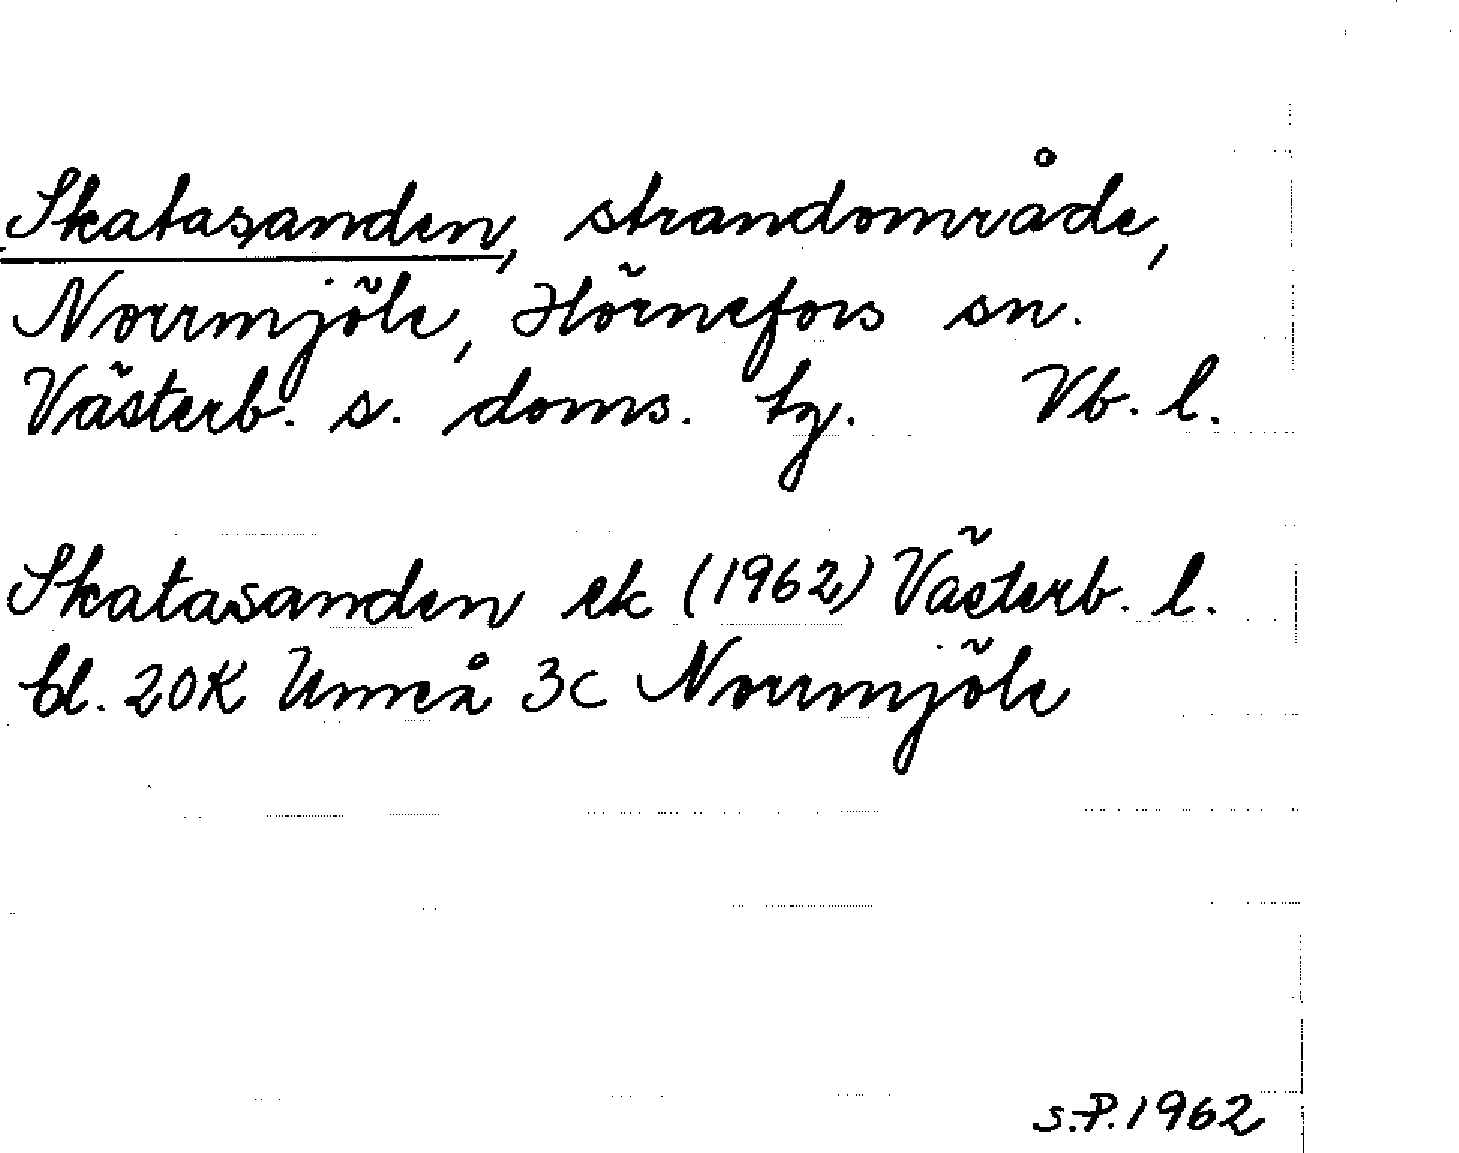 Skatasanden, strandområde,
Norrmjöle, Hörnefors sn.
Västerb. s. doms. tg. Vb. l.
Skatasanden ek (1962) Västerb. l.
bl. 20K Umeå 3c Norrmjöle
S.P. 1962